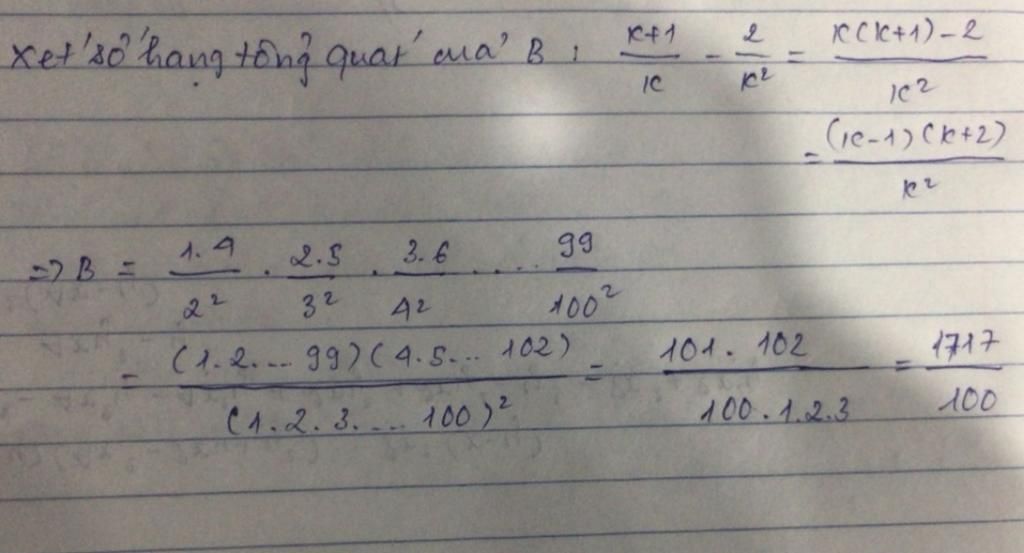 Xét số hạng tổng quát của B : k+1/k - 2/k² = k(k+1)-2/k²
= (k-1)(k+2)/k²
=> B = 1.4/2² . 2.5/3² . 3.6/4² .... 99/100²
= (1.2....99)(4.5...102)/(1.2.3....100)² = 101.102/100.1.2.3 = 1717/100